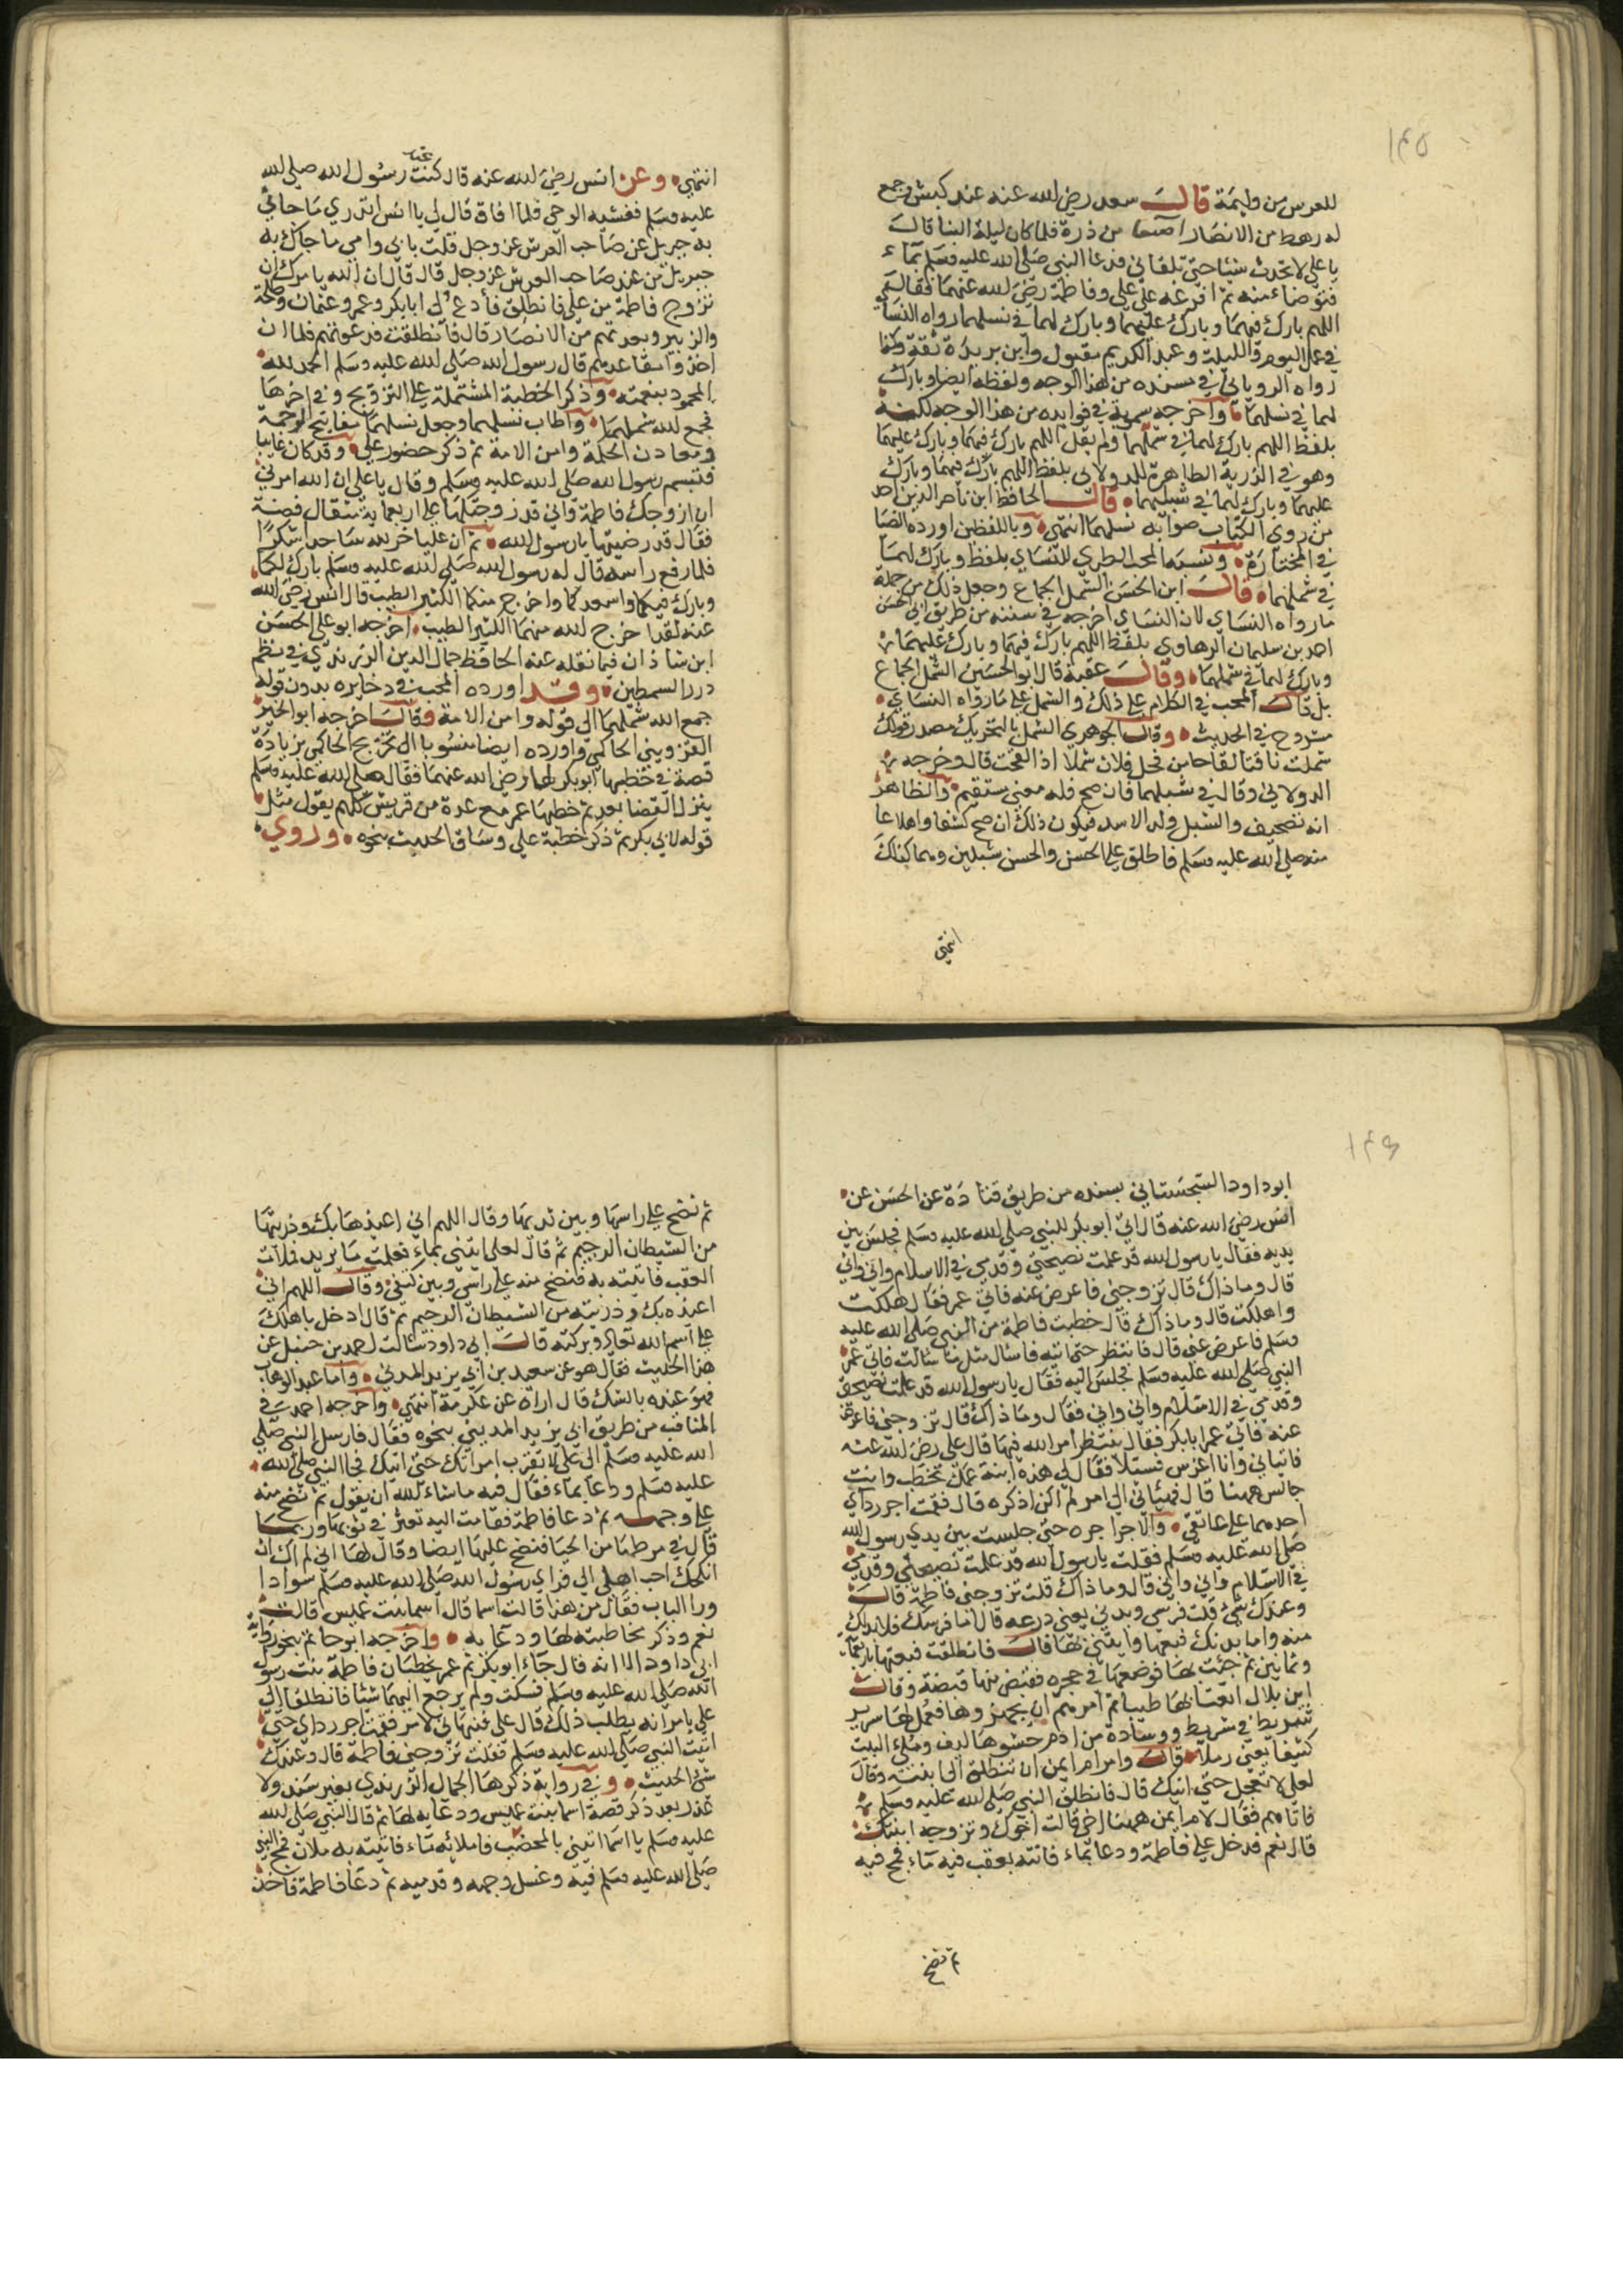 ١٤٥
للعرس من وليمة قالــ سعد رضي الله عنه عندي كبش وجمع
له رهط من الانصار اصعا من ذرة فلما كان ليلة البنا قالــ
يا علي لا تحدث شيئا حتى تلقاني فدعا النبي صلى الله عليه وسلم بماء
فتوضا منه ثم افرغه على علي وفاطمة رضي الله عنهما فقال
اللهم بارك فيهما وبارك عليهما وبارك لهما في نسلهما رواه النساي
في عمل اليوم والليلة وعبد الكريم مقبول وابن بريدة ثقة وكذا
رواه الروياني في مسنده من هذا الوجه ولفظه ايضا وبارك
لهما في نسلهما واخرجه سمويه في فوايده من هذا الوجه لكنه
بلفظ اللهم بارك لهما في شملهما ولم يقل اللهم بارك فيهما وبارك عليهما
وهو في الذرية الطاهرة للدولابي بلفظ اللهم بارك فيهما وبارك
عليهما وبارك لهما في شبليهما قالــ الحافظ ابن ناصر الدين احد
من روي الكتاب صوابه نسلهما انتهي وباللفظين اورده الضيا
في المختارة ونسبه المحب الطبري للنساي بلفظ وبارك لهما
في شملهما قالــ ابن الحسن الشمل الجماع وجعل ذلك من جملة
ما رواه النساي لان النساي اخرجه في سننه من طريق ابي الحسن
احمد بن سليمان الرهاوي بلفظ اللهم بارك فيهما وبارك عليهما
وبارك لهما في شملهما وقالــ عقبه قال ابو الحسين الشمل الجماع
بل قالــ المحب في الكلام على ذلك والشمل على ما رواه النساي
مشروح في الحديث وقالــ الجوهري الشمل بالتحريك مصدر قولك
شملت ناقتنا لقاحا من فحل فلان شملا اذا لقحت قال وخرجه
الدولابي وقال في شبليهما فان صح فله معني مستقيم والظاهر
انه تصحيف والشبل ولد الاسد فيكون ذلك ان صح كشفا واطلاعا
منه صلى الله عليه وسلم فاطلق على الحسن والحسين شبلين وهما كذلك
انتهي
انتهي وعن انس رضي الله عنه قال كنت عند رسول الله صلى الله
عليه وسلم فغشيه الوحي فلما افاق قال لي يا انس اتدري ما جاني
به جبريل عن صاحب العرش عز وجل قلت بابي وامي ما جاك به
جبريل من عند صاحب العرش عز وجل قال قال ان الله يامرك ان
تزوج فاطمة من علي فانطلق فادع لي ابا بكر وعمر وعثمان وطلحة
والزبير وبعدتهم من الانصار قال فانطلقت فدعوتهم فلما ان
اخذوا مقاعدهم قال رسول الله صلى الله عليه وسلم الحمد لله
المحمود بنعمته وذكر الخطبة المشتملة على التزويج وفي اخرها
فجمع الله شملهما واطاب نسلهما وجعل نسلهما مفاتيح الرحمة
ومعادن الحكمة وامن الامة ثم ذكر حضور علي وقد كان غايبا
فتبسم رسول الله صلى الله عليه وسلم وقال يا علي ان الله امرني
ان ازوجك فاطمة واني قد زوجتكها على اربعماية مثقال فضة
فقال قد رضيتها يا رسول الله ثم ان عليا خر لله ساجدا شكرا
فلما رفع راسه قال له رسول الله صلى الله عليه وسلم بارك لكما
وبارك فيكما واسعدكما واخرج منكما الكثير الطيب قال انس رضي الله
عنه لقد اخرج الله منهما الكثير الطيب اخرجه ابو علي الحسن
ابن شاذان فيما نقله عنه الحافظ جمال الدين الزرندي في نظم
درر السمطين وقد اورده المحب في ذخايره بدون قوله
جمع الله شملهما الى قوله وامن الامة وقالــ اخرجه ابو الخير
القزويني الحاكمي واورده ايضا منسوبا الى تخريج الحاكمي بزيادة
قصة في خطبها ابو بكر لها رضي الله عنهما فقال صلى الله عليه وسلم
ينزل القضا بعد ثم خطبها عمر مع عدة من قريش كلهم يقول مثل
قوله لابي بكر ثم ذكر خطبة علي وساق الحديث بنحوه وروي
١٤٦
ابو داود السجستاني بسنده من طريق قتادة عن الحسن عن
انس رضي الله عنه قال اتي ابو بكر للنبي صلى الله عليه وسلم فجلس بين
يديه فقال يا رسول الله قد علمت نصيحتي وقدمي في الاسلام واني واني
قال وما ذاك قال تزوجني فاعرض عنه فاتي عمر فقال هلكت
واهلكت قال وما ذاك قال خطبت فاطمة من النبي صلى الله عليه
وسلم فاعرض عني قال فانتظر حتى اتيه فاسال مثل ما سالت فاتي عمر
النبي صلى الله عليه وسلم فجلس اليه فقال يا رسول الله قد علمت نصيحتي
وقدمي في الاسلام واني واني فقال وما ذاك قال تزوجني فاعرض
عنه فاتي عمر ابا بكر فقال ينتظر امر الله فيها قال علي رضي الله عنه
فاتياني وانا اغرس فسيلا فقالا لي هذه ابنة عمك تخطب وانت
جالس ههنا قال فنبهاني الى امر لم اكن اذكره قال فقمت اجر رداي
احدهما على عاتقي والاخر اجره حتى جلست بين يدي رسول الله
صلى الله عليه وسلم فقلت يا رسول الله قد علمت نصيحتي وقدمي
في الاسلام واني واني قال وما ذاك قلت تزوجني فاطمة قالــ
وعندك شي قلت فرسي وبدني يعني درعه قال اما فرسك فلا بد لك
منه واما بدنك فبعها وايتني بها قالــ فانطلقت فبعتها باربعماية
وثمانين ثم جئت بها فوضعتها في حجره فقبض منها قبضة وقالــ
اين بلال ابغنا بها طيبا ثم امرهم ان يجهزوها فعمل لها سرير
شريط في شريط ووسادة من ادم حشوها ليف وملي البيت
كثيبا يعني رملا قالــ وامر ام ايمن ان تنطلق الى ابنته وقال
لعلي لا تعجل حتى اتيك قال فانطلق النبي صلى الله عليه وسلم
فاتاهم فقال لام ايمن ههنا اخي قالت اخوك وتزوجه ابنتك
قال نعم فدخل علي فاطمة ودعا بماء فاتته بعقب فيه ماء فمج فيه
ثم نضح
ثم نضح على راسها وبين ثدييها وقال اللهم اني اعيذها بك وذريتها
من الشيطان الرجيم ثم قال لعلي ايتني بماء فعلمت ما يريد فملات
العقب فاتيته به فنضح منه على راسي وبين كتفي وقالــ اللهم اني
اعيذه بك وذريته من الشيطان الرجيم ثم قال ادخل باهلك
على اسم الله تعالى وبركته قالــ ابي داود سالت احمد بن حنبل عن
هذا الحديث فقال هو عن سعيد بن ابي يزيد المدني واما عبد الوهاب
فهو عنده بالشك قال اراه عن عكرمة انتهي واخرجه احمد في
المناقب من طريق ابي يزيد المديني بنحوه فقال فارسل النبي صلى
الله عليه وسلم الى علي لا تقرب امراتك حتى اتيك فجا النبي صلى الله
عليه وسلم ودعا بماء فقال فيه ما شاء الله ان يقول ثم نضح منه
على وجهه ثم دعا فاطمة فقامت اليه تعثر في ثوبها وربما
قال في مرطها من الحيا فنضح عليها ايضا وقال لها اني لم ال ان
انكحك احب اهلي الي فراي رسول الله صلى الله عليه وسلم سوادا
ورا الباب فقال من هذا قالت اسما قال اسما بنت عميس قالت
نعم وذكر مخاطبته لها ودعا به واخرجه ابو حاتم بنحو رواية
ابي داود الا انه قال جاء ابو بكر ثم عمر يخطبان فاطمة بنت رسول
الله صلى الله عليه وسلم فسكت ولم يرجع اليهما شيئا فانطلقا الى
علي يامرانه بطلب ذلك قال علي فنبهاني لامر فقمت اجر رداي حتى
اتيت النبي صلى الله عليه وسلم فقلت تزوجني فاطمة قال وعندك
شي الحديث وفي رواية ذكرها الجمال الزرندي بغير سند ولا
عزو بعد ذكر قصة اسما بنت عميس ودعا به لها ثم قال النبي صلى الله
عليه وسلم يا اسما ايتيني بالمخضب فاملايه ماء فاتيته به ملان فمج النبي
صلى الله عليه وسلم فيه وغسل وجهه وقدميه ثم دعا فاطمة فاخذ